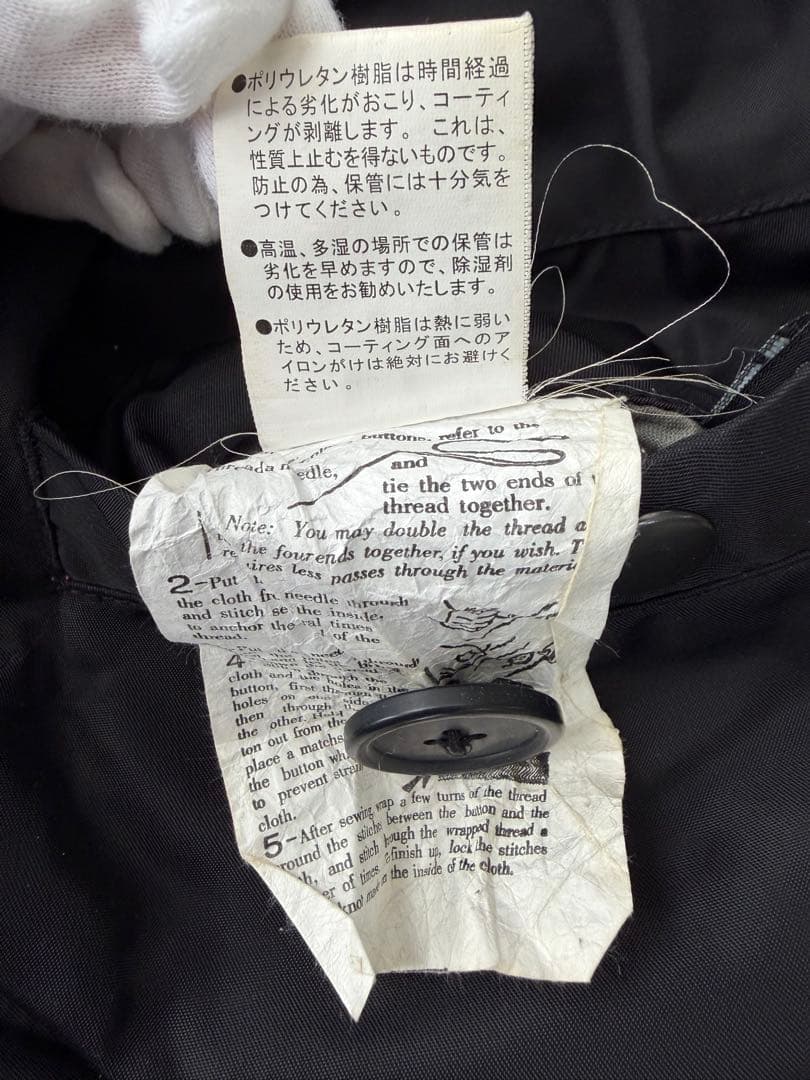 ●ポリウレタン樹脂は時間経過
による劣化がおこり、コーティ
ングが剥離します。これは、
性質上止むを得ないものです。
防止の為、保管には十分気を
つけてください。
●高温、多湿の場所での保管は
劣化を早めますので、除湿剤
の使用をお勧めいたします。
●ポリウレタン樹脂は熱に弱い
ため、コーティング面へのア
イロンがけは絶対にお避けく
ださい。
buttons, refer to the
and
tie the two ends of
thread together.
Note: You may double the thread
the four ends together, if you wish.
less passes through the
2-Put
the cloth needle through
and stitch the inside,
to anchor the times
thread. of the
4
cloth and through the
button, first through
holes on one side,
then through
the other. Hold
out from the
place a
the button
to prevent
cloth.
5-After sewing wrap a few turns of the thread
round the between the button and the
and stitch the wrapped thread a
of times. finish up, lock the stitches
the inside of the cloth.